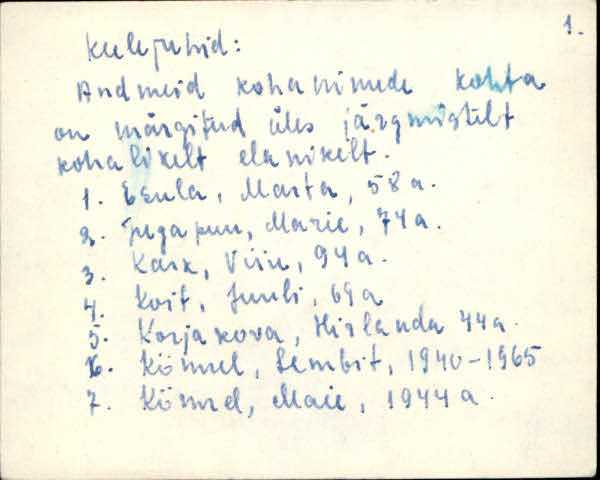 1.
Keelejuhid:
Andmeid kohanimede kohta
on märgitud üles järgmistelt
kohalikelt elanikelt.
1. Eenla, Marta, 58 a.
2. Jugapuu, Marie, 74 a.
3. Kask, Viiu, 94 a.
4. Koit, Juuli, 69 a
5. Korjakova, Hislanda 44 a.
6. Kömel, Lembit, 1940-1965
7. Kömel, Maie, 1944 a.